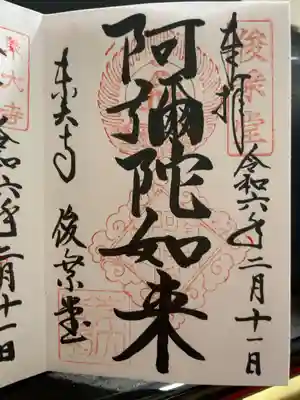 奉拝
俊乗堂
令和六年二月十一日
阿彌陀如来
東大寺
俊乗堂
東大寺
令和六年二月十一日